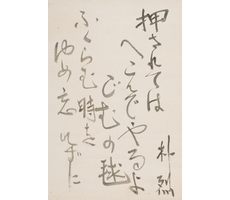 押されては
へこんでやるよ
ごむの毬
ふくらむ時を
ゆめ忘れずに
朴烈